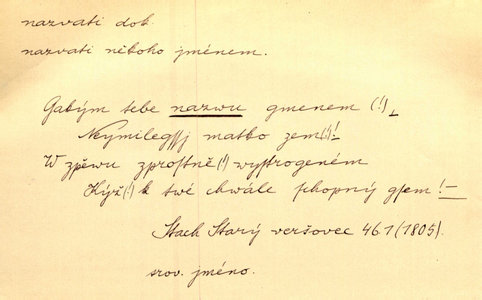 nazvati dok.
nazvati někoho jménem.
Gakým tebe nazwu gmenem (!),
Neymilegssj matko zem(!)!
W zpěwu zprostně(!) wystrogeném
Kýž(!) k twé chwále schopný gsem! –
Stach Starý veršovec 46.1 (1805).
srov. jméno.